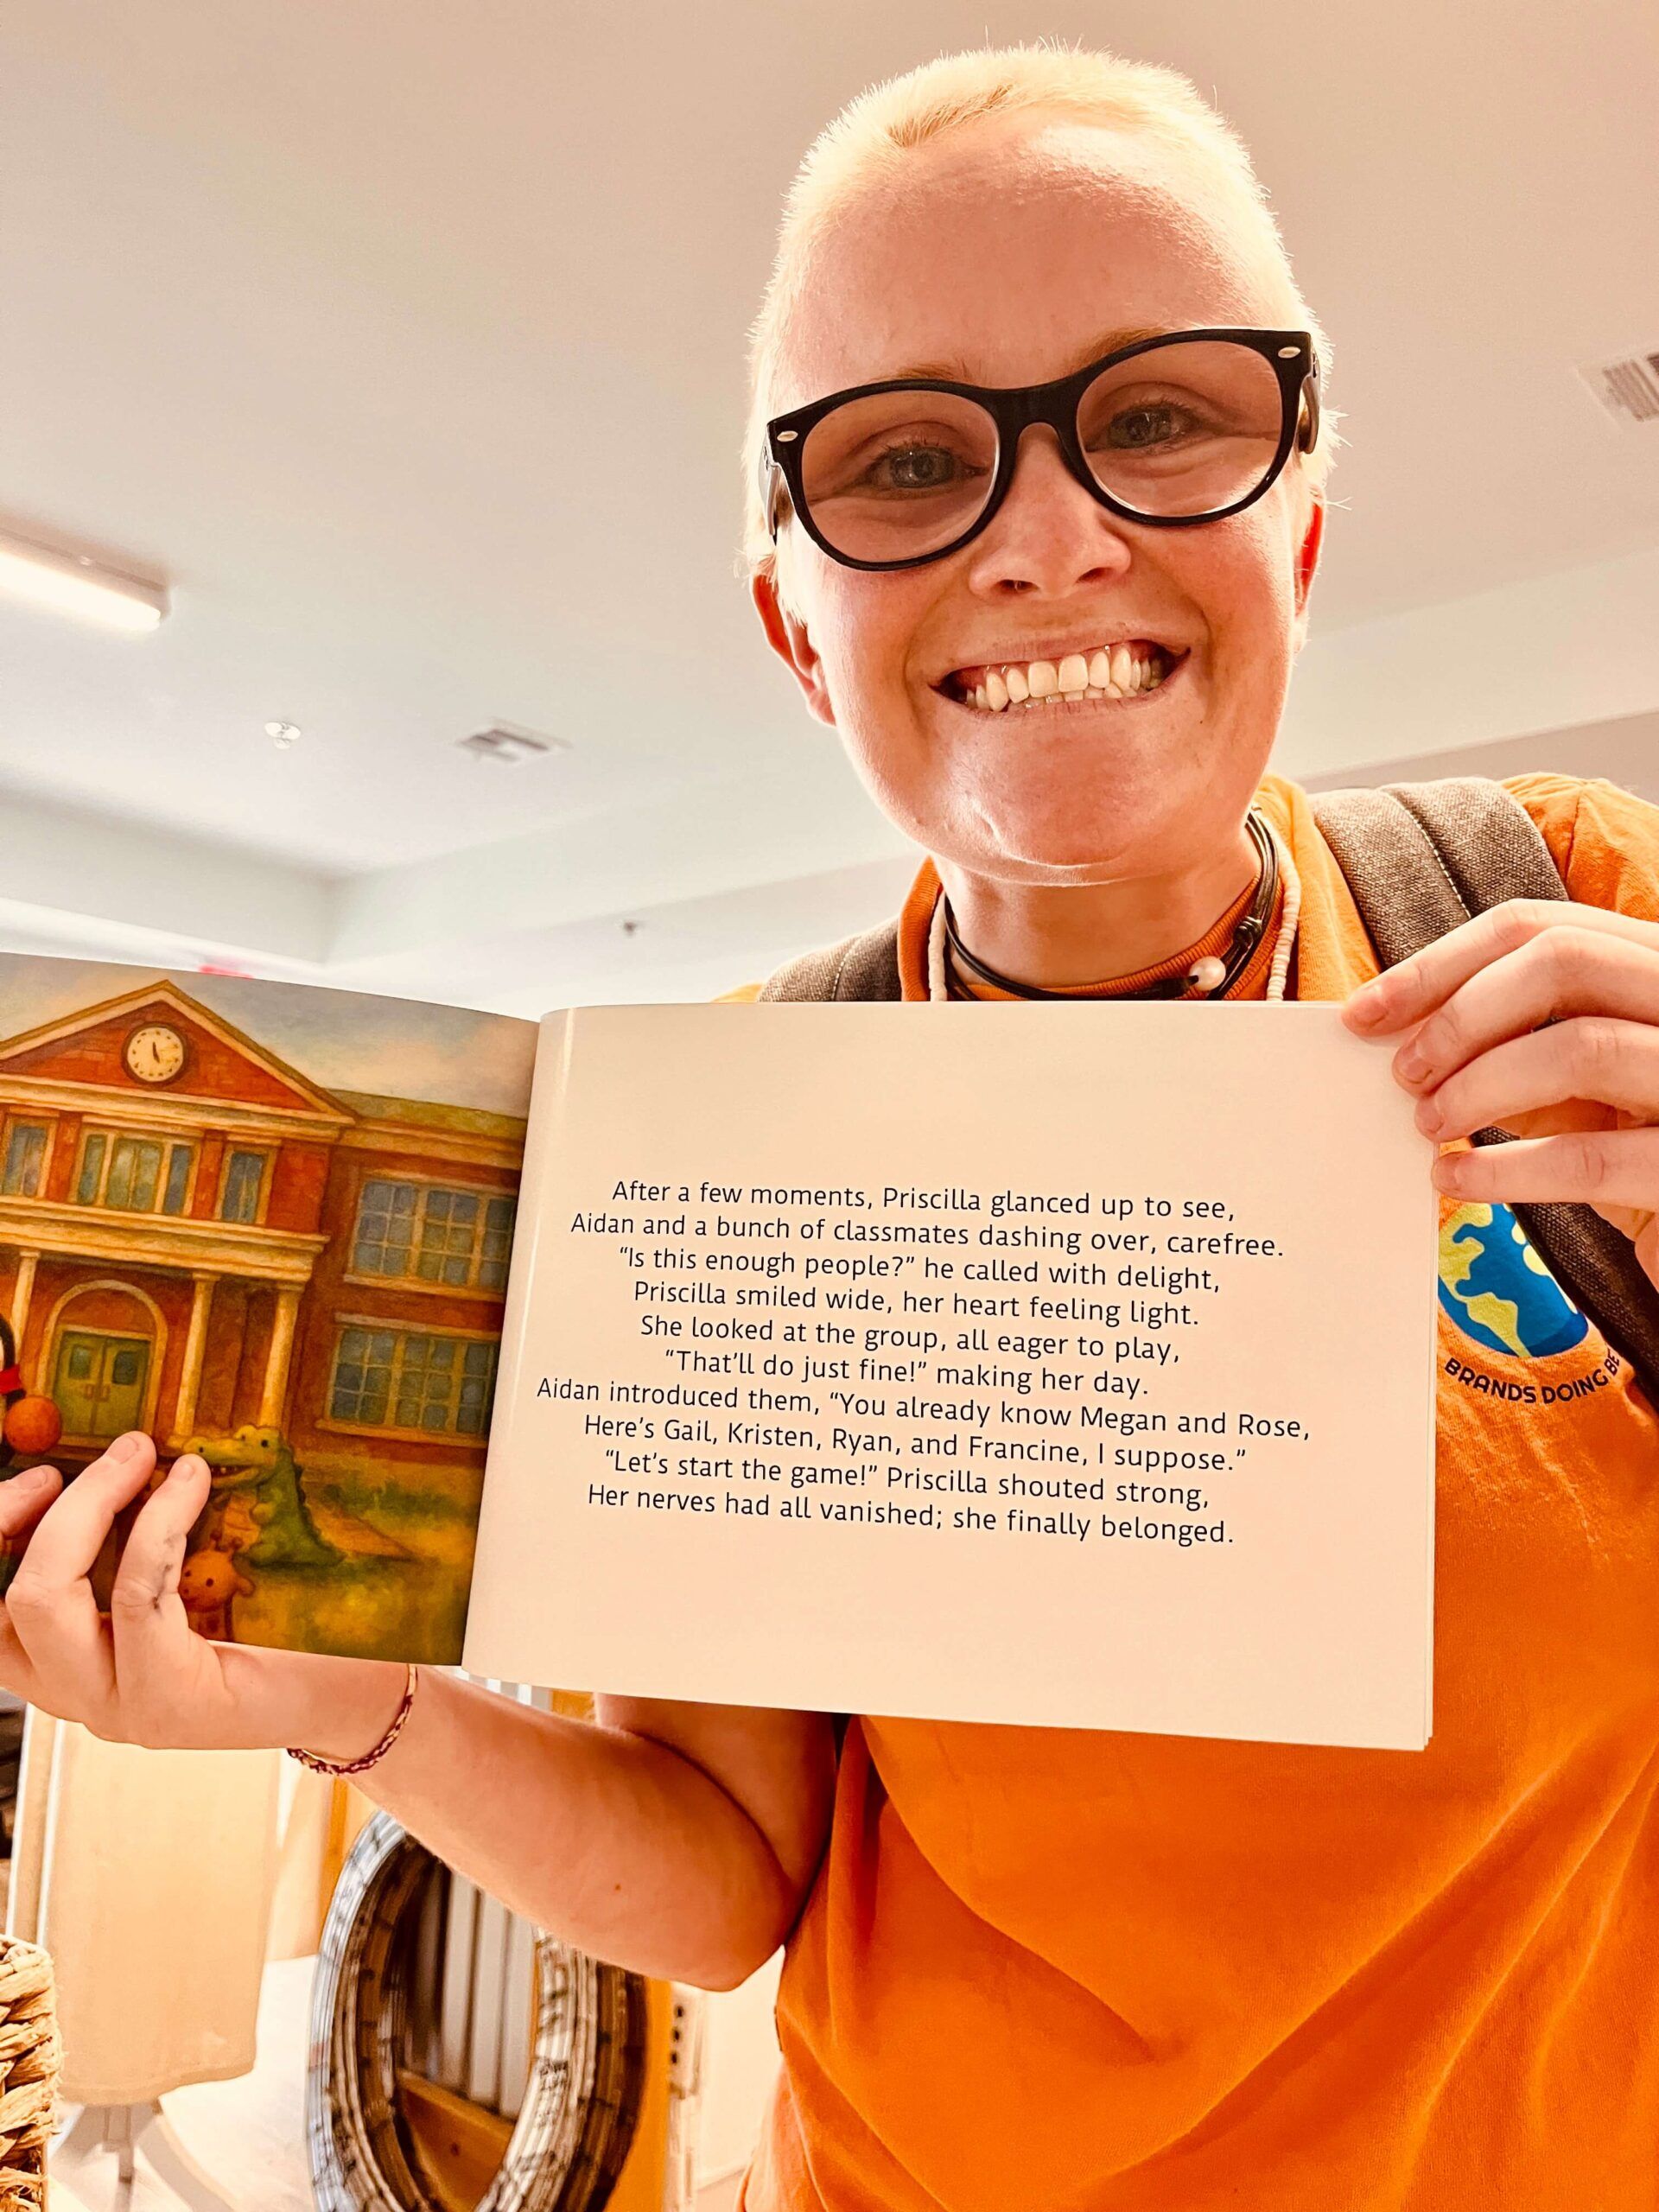 After a few moments, Priscilla glanced up to see,
Aidan and a bunch of classmates dashing over, carefree.
“Is this enough people?” he called with delight,
Priscilla smiled wide, her heart feeling light.
She looked at the group, all eager to play,
“That’ll do just fine!” making her day.
Aidan introduced them, “You already know Megan and Rose,
Here’s Gail, Kristen, Ryan, and Francine, I suppose.”
“Let’s start the game!” Priscilla shouted strong,
Her nerves had all vanished; she finally belonged.
BRANDS DOING BE